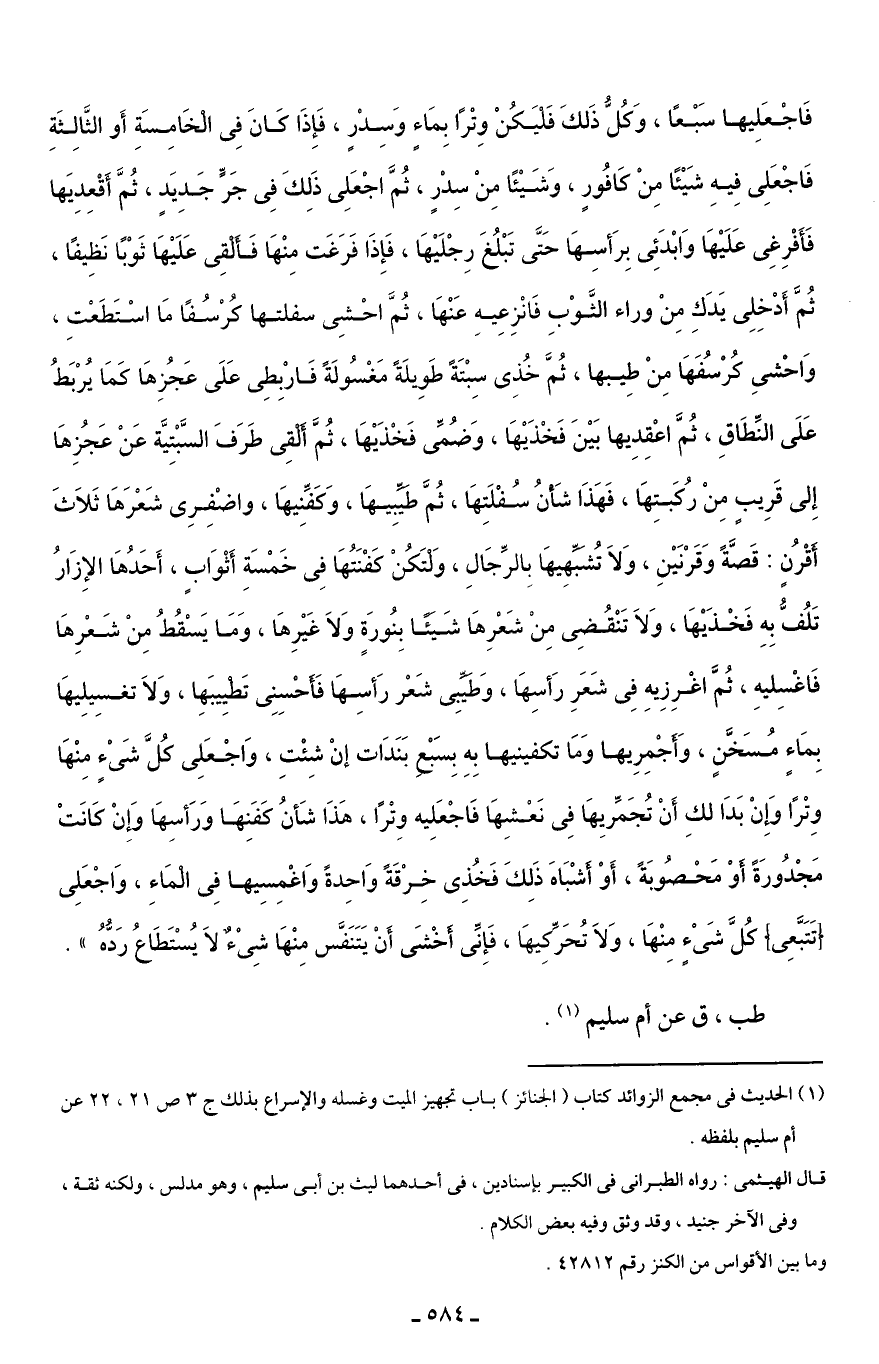 فَاجْعَلِيها سَبْعًا ، وَكُلُّ ذَلكَ فَلْيَكُنْ وِتْرًا بِمَاءٍ وَسِدْرٍ ، فَإِذَا كَانَ فِى الْخَامِسَةِ أَو الثَّالِثَةِ
فَاجْعَلِى فِيهِ شَيْئًا مِنْ كَافُورٍ ، وَشَيْئًا مِنْ سِدْرٍ ، ثُمَّ اجْعَلِى ذَلِكَ فِى جَرٍّ جَدِيَدٍ ، ثُمَّ أَقْعِدِيَها
فَأَفْرِغِى عَلَيْهَا وَابْدَئِى بِرَأسِهَا حَتَّى تَبْلُغَ رِجْلَيْهَا ، فَإِذَا فَرَغَت مِنْهَا فَأَلْقِى عَلَيْهَا ثَوْبًا نَظِيفًا ،
ثُمَّ أَدْخِلِى يَدَكِ مِنْ وراء الثَّوْبِ فَانْزِعِيهِ عَنْهَا ، ثُمَّ احْشى سفلتها كُرْسُفًا مَا اسْتَطَعْتِ ،
وَاحْشِى كُرْسُفَهَا مِنْ طيبها ، ثُمَّ خُذِى سبْتَةً طَوِيلَةً مَغْسُولَةً فَارْبِطِى عَلَى عَجُزِهَا كَمَا يُرْبَطُ
عَلَى النِّطَاقِ ، ثُمَّ اعْقِدِيها بَيْنَ فَخْذَيْهَا ، وَضُمِّى فَخْذَيْهَا ، ثُمَّ أَلْقِى طَرَفَ السَّبْتِيَّة عَنْ عَجُزِهَا
إلى قَرِيبٍ مِنْ رُكَبَتِها ، فَهَذَا شَأنُ سُفْلَتِهَا ، ثُمَّ طَيِّبِيهَا ، وَكَفِّنِيهَا ، واضْفِرِى شَعْرَهَا ثَلاَثَ
أَقْرُنٍ : قَصَّةً وَقَرْنَيْنِ ، وَلاَ تُشبِّهِيهَا بالرِّجَالِ ، وَلْتَكُنْ كَفْنَتُهَا فِى خَمْسَةِ أَثْوَابٍ ، أَحَدُهَا الإِزَارُ
تَلُفُّ بِهِ فَخْذَيْهَا ، وَلاَ تَنْقُضِى مِنْ شَعْرِهَا شَيَئًا بِنُورَةٍ وَلاَ غَيْرِهَا ، وَمَا يَسْقُطُ مِنْ شَعْرِهَا
فَاغْسِلِيهِ ، ثُمَّ اغْرِزِيهِ فِى شَعَرِ رَأسِهَا ، وَطَيِّبِى شَعْر رَأسِهَا فَأَحْسِنِى تَطْيِيبَها ، وَلاَ تغسِيلِيهَا
بِمَاءٍ مُسَخَّنٍ ، وَأَجْمِريها وَمَا تكفينيها بِهِ بِسَبْعِ بَنَدَات إنْ شئْت ، وَاجْعَلى كُلَّ شَىْءٍ مِنْهَا
وِتْرًا وَإنْ بَدَا لكِ أَنْ تُجَمِّرِيهَا فِى نَعْشِهَا فَاجْعَلِيه وِتْرًا ، هَذَا شَأنُ كَفَنِهَا وَرَأسِهَا وَإِنْ كَانَتْ
مَجْدُورَةً أَوْ مَحْصُوبَةً ، أَوْ أَشْبَاهَ ذَلِكَ فَخُذِى خِرْقَةً وَاحِدةً وَاغْمِسِيها فِى الْماءِ ، وَاجْعَلِى
{تَتَبَّعِى} كُلَّ شَىْءٍ مِنْهَا ، وَلاَ تُحَرِّكِيهَا ، فَإِنِّى أَخْشَى أَنْ يَتَنَفَّس مِنْهَا شىْءٌ لاَ يُسْتَطَاعُ رَدُّهُ » .
طب ، ق عن أم سليم (١) .
(١) الحديث فى مجمع الزوائد كتاب ( الجنائز ) باب تجهيز الميت وغسله والإسراع بذلك ج ٣ ص ٢١ ، ٢٢ عن
أم سليم بلفظه .
قال الهيثمى : رواه الطبرانى فى الكبير بإسنادين ، فى أحدهما ليث بن أبى سليم ، وهو مدلس ، ولكنه ثقة ،
وفى الآخر جنيد ، وقد وثق وفيه بعض الكلام .
وما بين الأقواس من الكنز رقم ٤٢٨١٢ .
ـ ٥٨٤ ـ